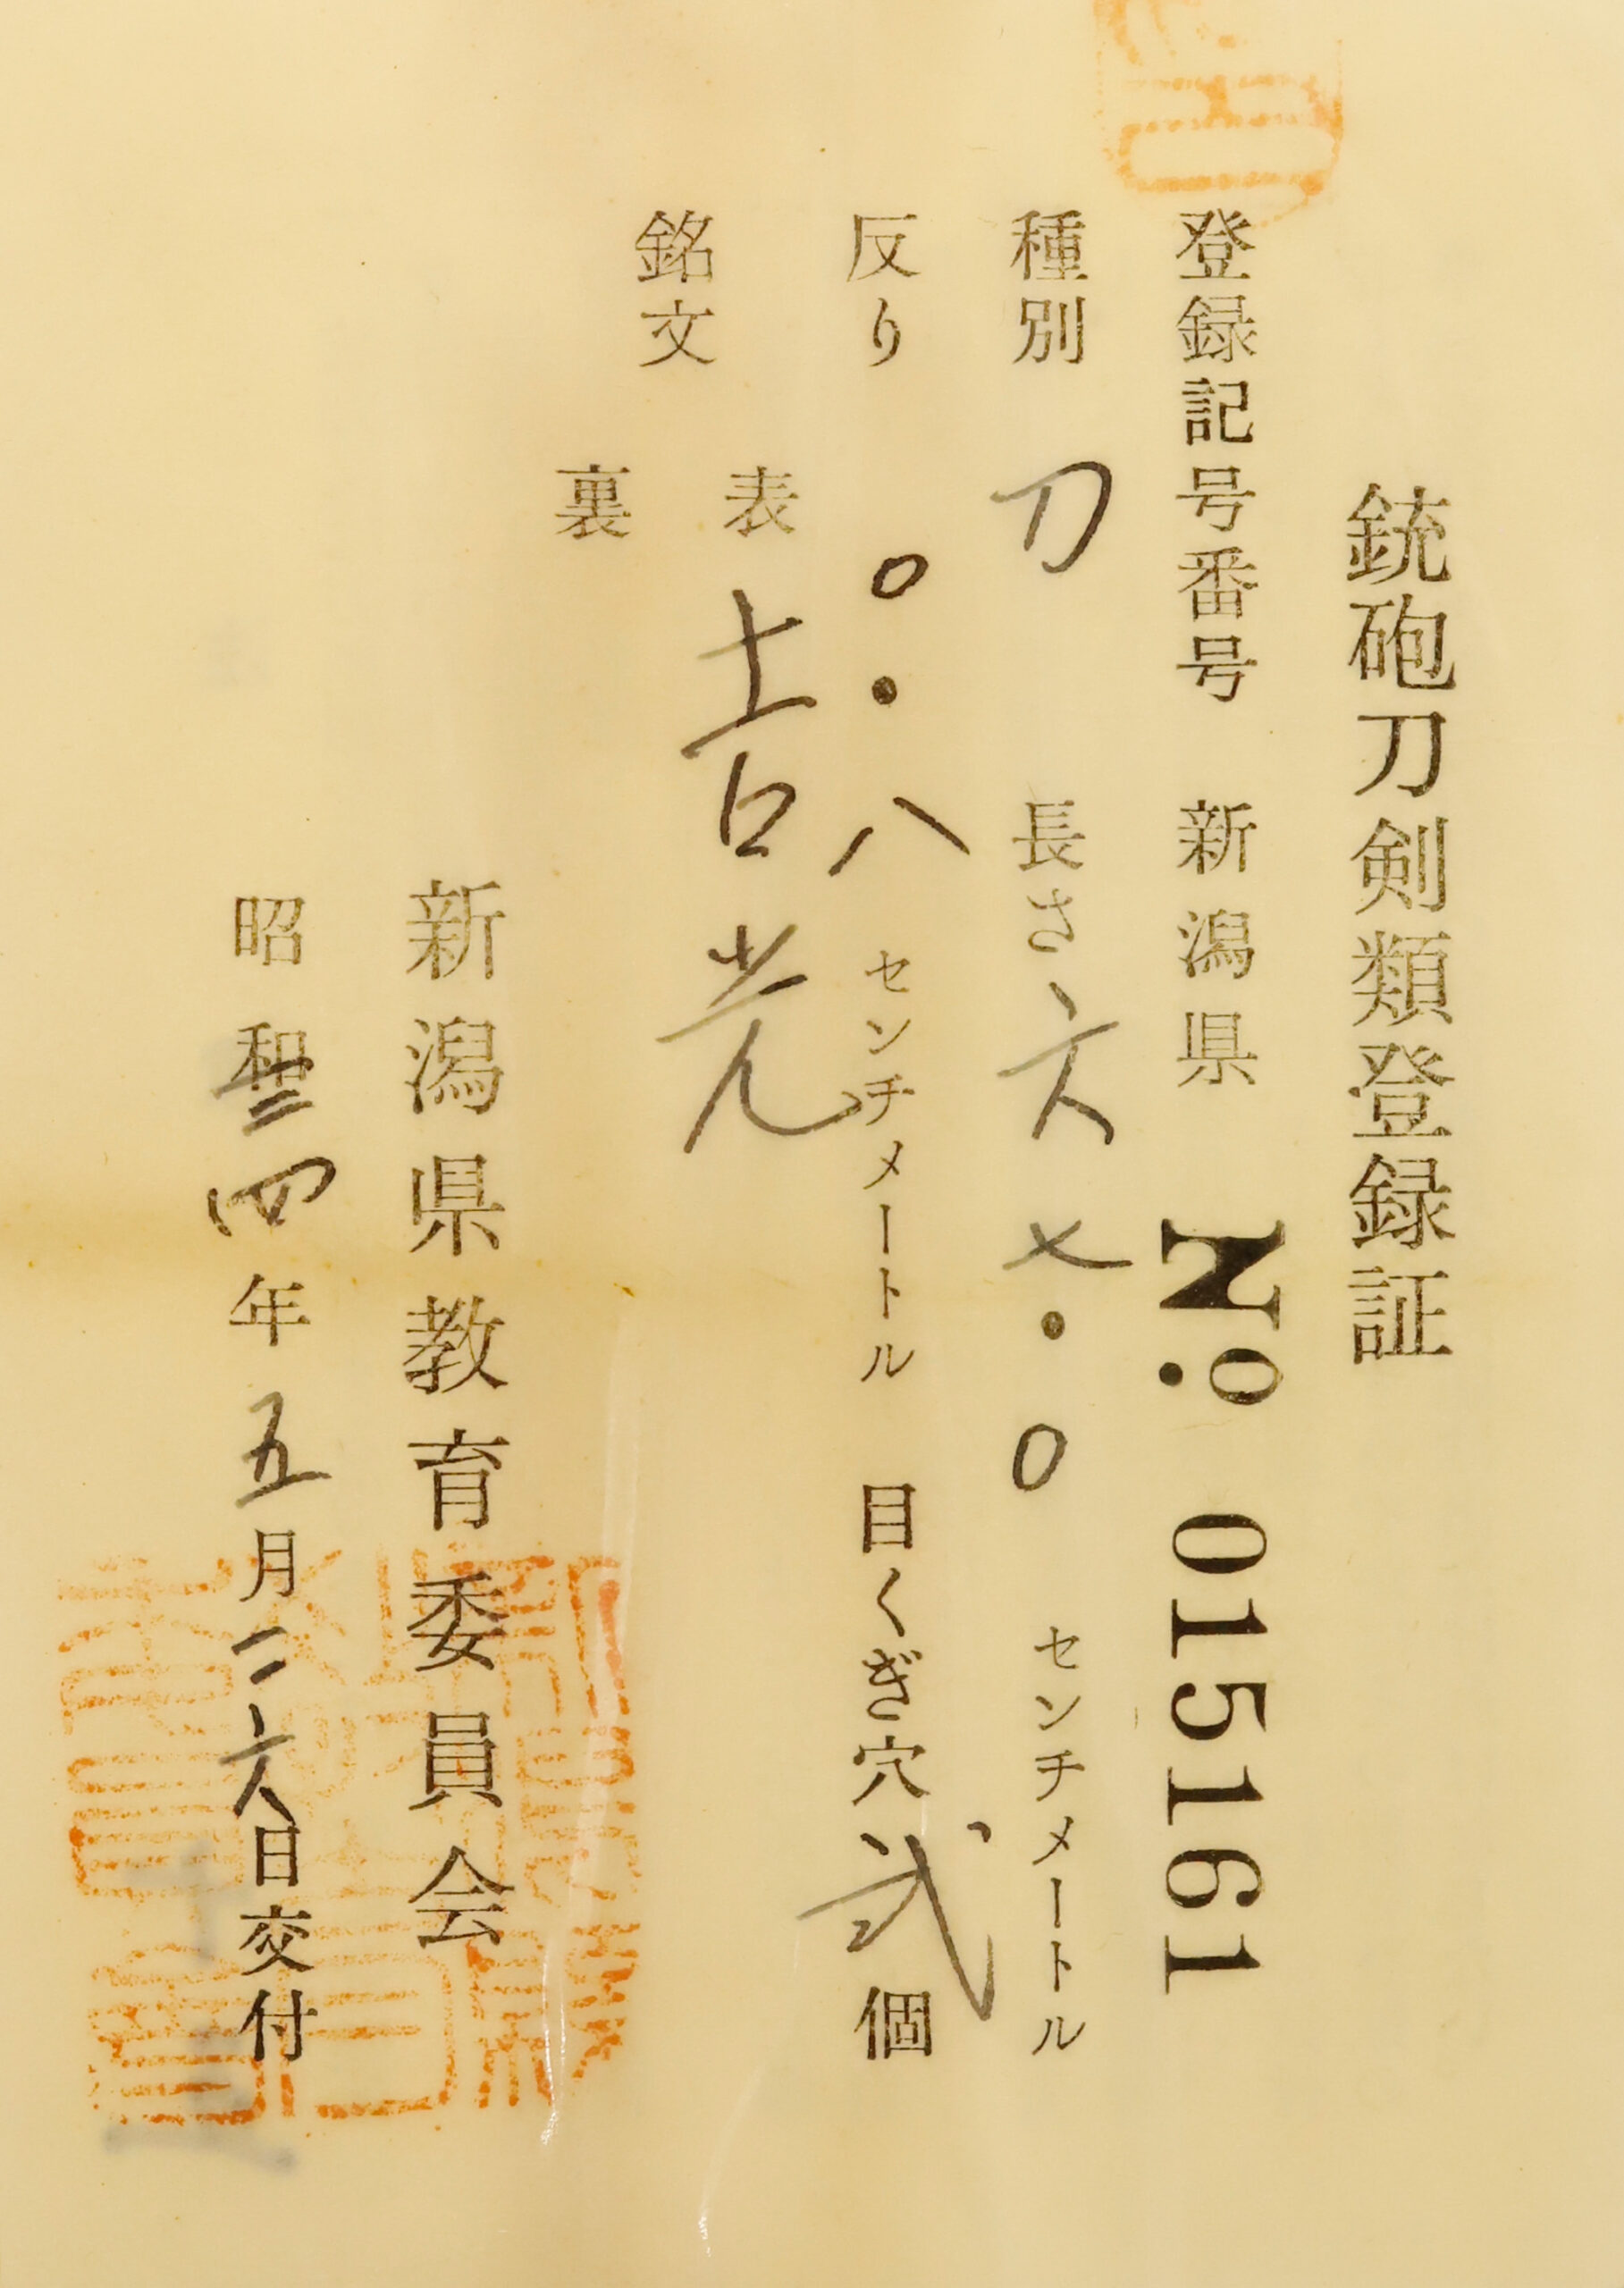 銃砲刀剣類登録証
登録記号番号 新潟県 No. 015161
種別 刀 長さ 六七・〇 センチメートル
反り 〇・八 センチメートル 目くぎ穴 弍 個
銘文
表 吉光
裏
新潟県教育委員会
昭和三四年五月二六日交付